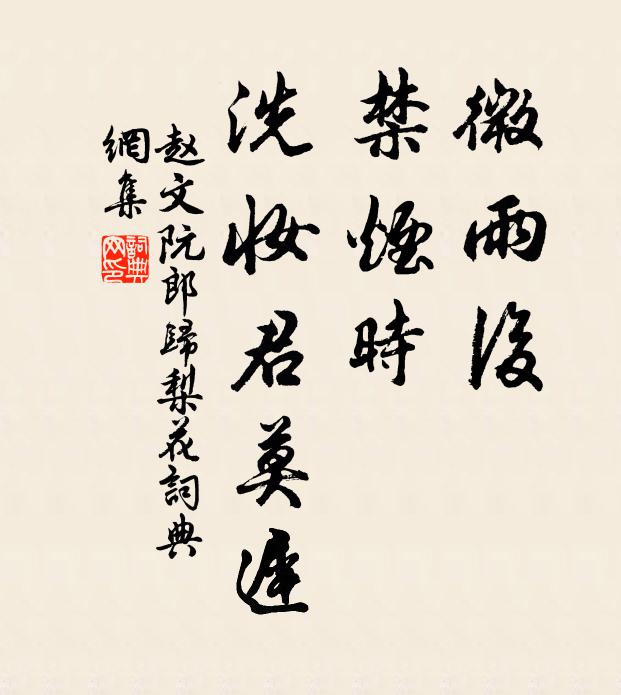 微雨後
禁煙時
洗妝君莫遲
赵文阮郎歸梨花詞典
網集
詞典
网印